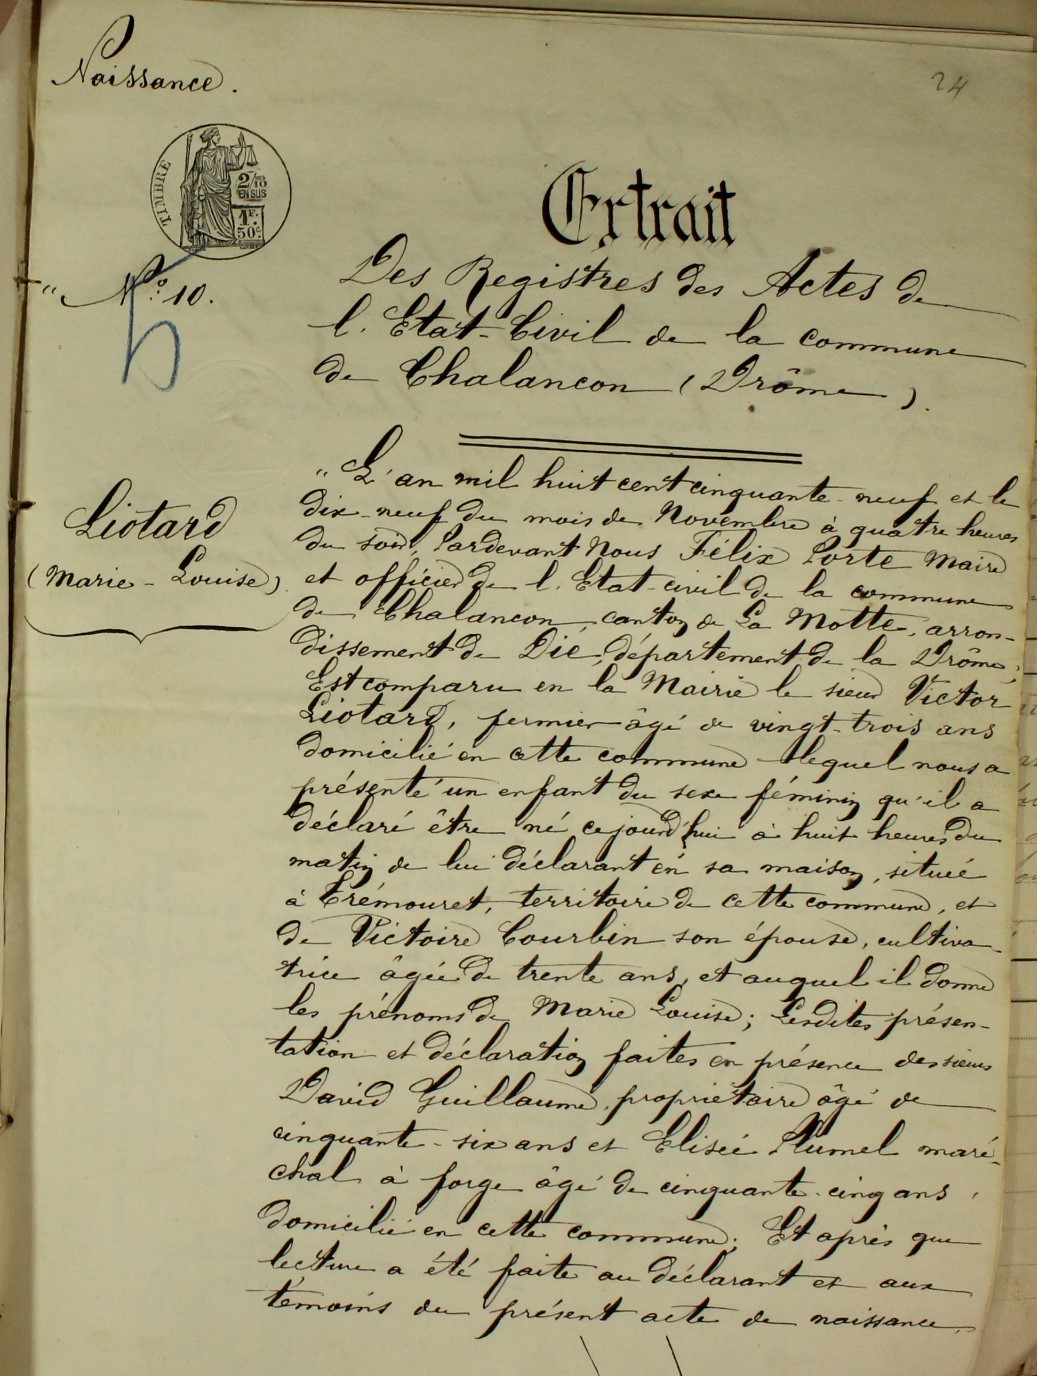 Naissance.
24
TIMBRE
2/10
EN SUS
1F.
50c.
Extrait
Des Registres des Actes de
" No. 10.
l'Etat-Civil de la commune
de Chalancon (Drôme).
"L'an mil huit cent cinquante-neuf et le
Liotard
dix-neuf du mois de Novembre à quatre heures
du soir, Pardevant Nous Félix Porte Maire
(Marie-Louise)
et officier de l'Etat-civil de la commune
de Chalancon, canton de La Motte, arron-
dissement de Die, département de la Drôme;
Est comparu en la Mairie le sieur Victor
Liotard, fermier âgé de vingt-trois ans
domicilié en cette commune lequel nous a
présenté un enfant du sexe féminin qu'il a
déclaré être né cejourd'hui à huit heures du
matin de lui déclarant en sa maison, située
à Trémouret, territoire de cette commune, et
de Victoire Courbin son épouse, cultiva-
trice âgée de trente ans, et auquel il donne
les prénoms de Marie Louise; Lesdites présen-
tation et déclaration faites en présence des sieurs
David Guillaume, propriétaire âgé de
cinquante-six ans et Elisée Plumel maré-
chal à forge âgé de cinquante-cinq ans,
domicilié en cette commune; Et après que
lecture a été faite au déclarant et aux
témoins du présent acte de naissance,